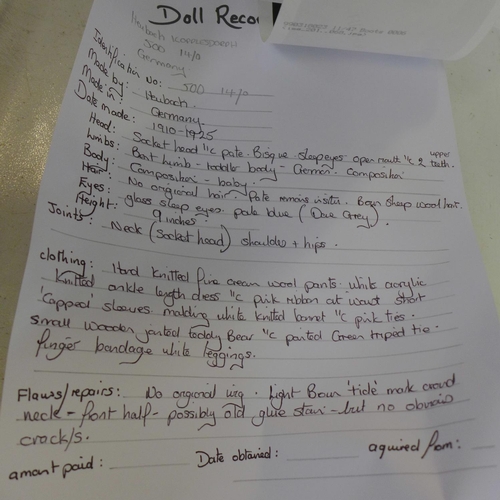 Doll Reco
Heubach Koppelsdorf
500 14/0
Germany
Identification No: 500 14/0
Made by: Heubach.
Made in: Germany.
Date made: 1910-1925
Head: Socket head "c pate. Bisque sleep eyes open mouth "c 2 upper teeth.
Limbs: Bent limb - toddler body - German. Composition
Body: Composition - baby.
Hair: No original hair. Pate remains insitu. Bean sheep wool hair.
Eyes: glass sleep eyes. pale blue (Dove Grey).
Height: 9 inches.
Joints: Neck (Socket head) shoulder + hips.
clothing: Hand knitted fine cream wool pants. white acrylic
knitted ankle length dress "c pink ribbon at waist short
'capped' sleeves. matching white knitted bonnet "c pink ties.
small wooden jointed teddy Bear "c painted Green striped tie.
finger bandage white leggings.
Flaws/repairs: No original wig. Light Brown 'tide' mark around
neck - front half - possibly old glue stain - but no obvious
crack/s.
amount paid:
Date obtained:
aquired from: